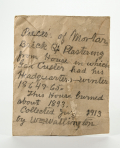 Pieces of Mortar,
Brick & Plastering
from House in which
Gen Custer had his
Headquarters - winter
1864 & 65.
This House burned
about 1899.
Collected 1913
by